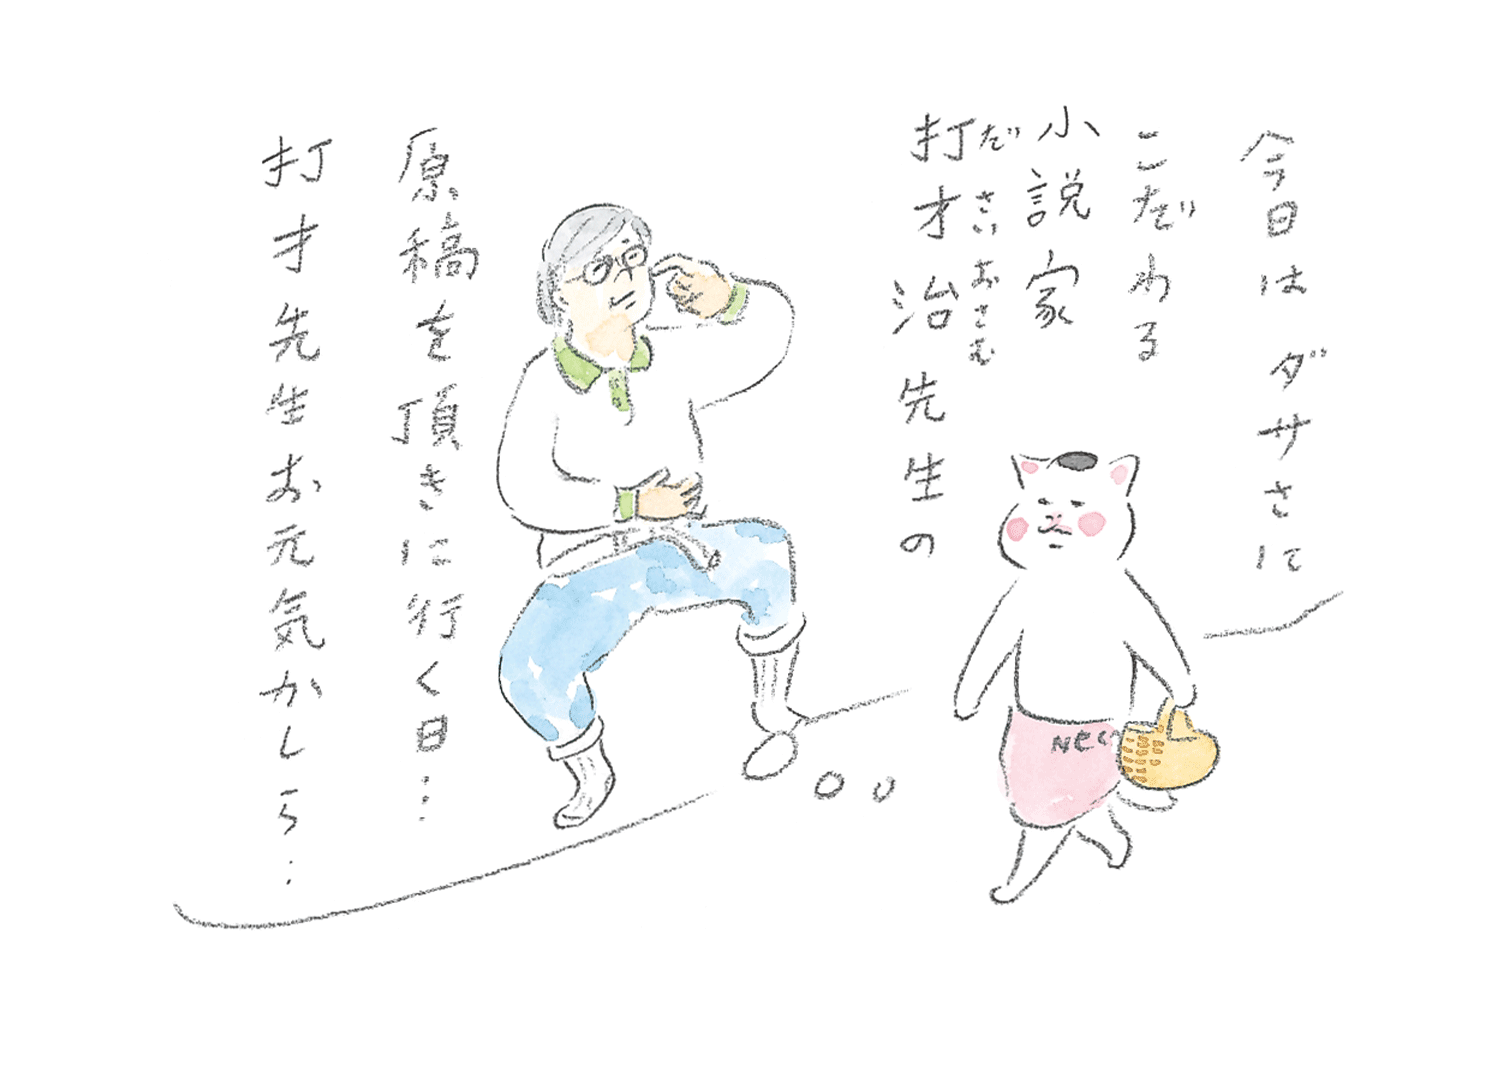 今日は ダサさに
こだわる
小説家
打才治先生の
ださいおさむ
原稿を頂きに行く日…
打才先生お元気かしら…
NECO